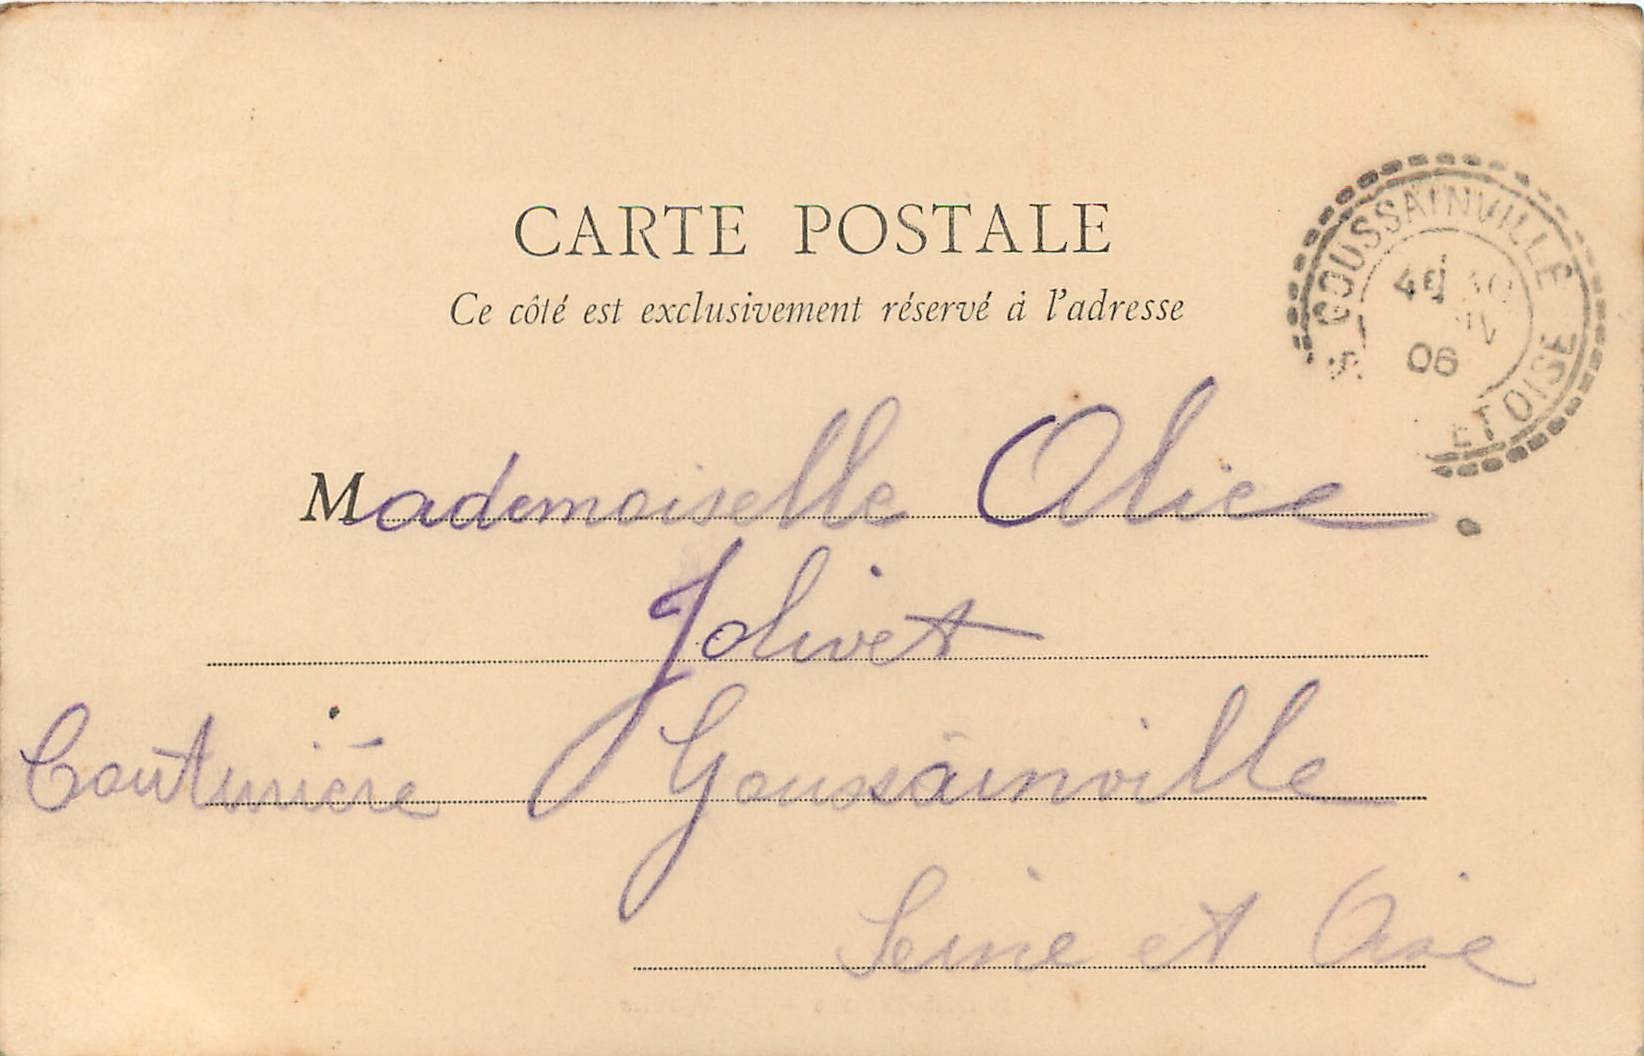 CARTE POSTALE
Ce côté est exclusivement réservé à l'adresse
GOUSSAINVILLE
06
ET OISE
Mademoiselle Alice
Jolivet
Couturière Goussainville
Seine et Oise